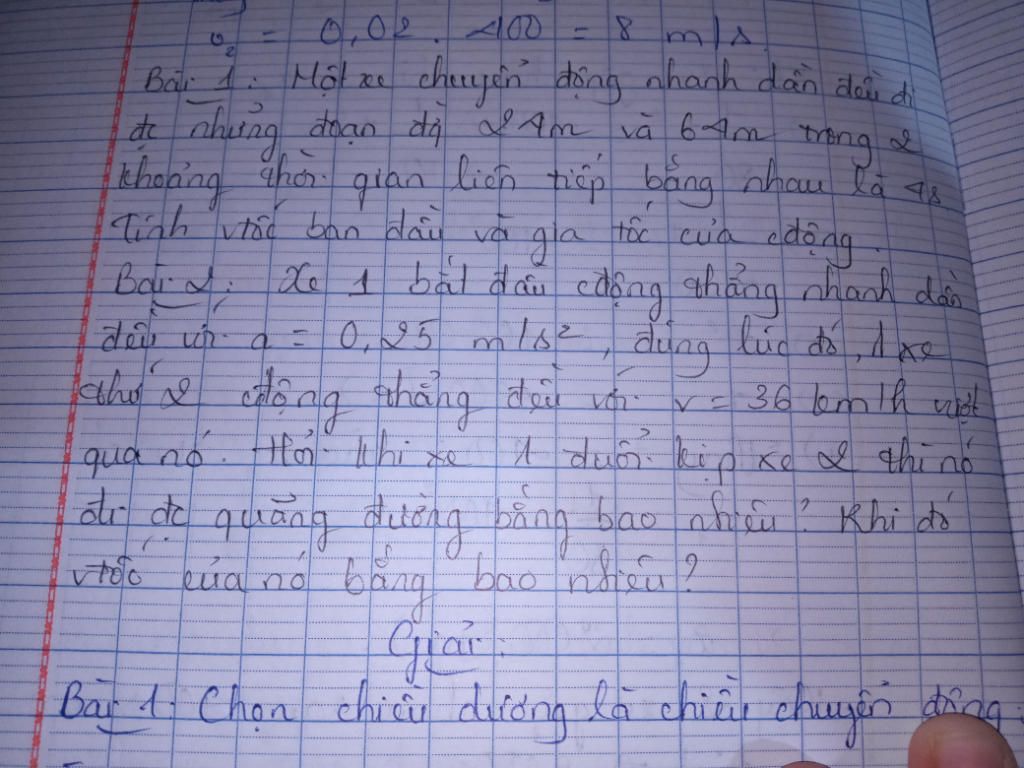 v₂ = 0,02 . 400 = 8 m/s
Bài 1: Một xe chuyển động nhanh dần đều đi
đc những đoạn đg 24m và 64m trong 2
khoảng thời gian liên tiếp bằng nhau là 4s
Tính vtốc ban đầu và gia tốc của cđộng.
Bài 2: Xe 1 bắt đầu cđộng thẳng nhanh dần
đều với a = 0,25 m/s², đúng lúc đó, 1 xe
thứ 2 cđộng thẳng đều với v = 36 km/h vượt
qua nó. Hỏi khi xe 1 đuổi kịp xe 2 thì nó
đi đc quãng đường bằng bao nhiêu? Khi đó
vtốc của nó bằng bao nhiêu?
Giải:
Bài 1: Chọn chiều dương là chiều chuyển động.